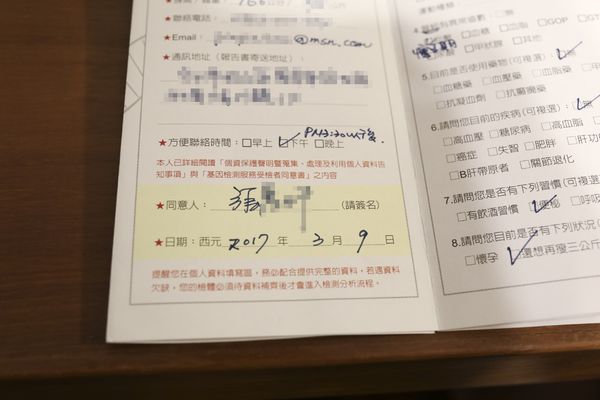 ★聯絡電話：
★Email：@msn.com
★通訊地址（報告書寄送地址）：
★方便聯絡時間：□早上 ☑下午 □晚上 PM3:30以後.
本人已詳細閱讀「個資保護聲明暨蒐集、處理及利用個人資料告
知事項」與「基因檢測服務受檢者同意書」之內容
★同意人：張 （請簽名）
★日期：西元 2017 年 3 月 9 日
提醒您在個人資料填寫區，務必配合提供完整的資料，若遇資料
欠缺，您的檢體必須待資料補齊後才會進入檢測分析流程。
4.
□血糖 □血脂 □GOP □GT
□甲狀腺 □其他
5.目前是否使用藥物(可複選)：☑無
□血糖藥 □血壓藥 □血脂藥
□抗凝血劑 □抗癲癇藥
6.請問您目前的疾病(可複選)：☑無
□高血壓 □糖尿病 □高血脂
□癌症 □失智 □肥胖 □肝功
□B肝帶原者 □關節退化
7.請問您是否有下列習慣(可複選
□有飲酒習慣 ☑便秘 □呼吸
8.請問您目前是否有下列狀況(
□懷孕 ☑還想再瘦三公斤